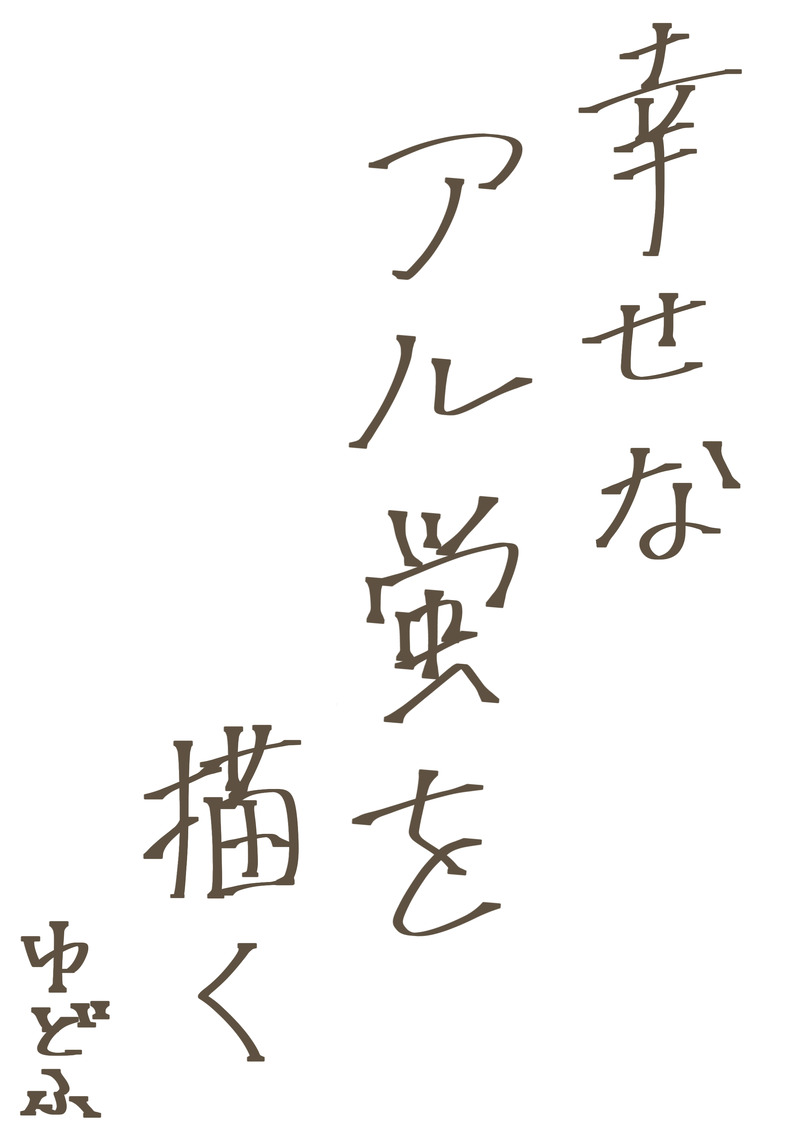 幸せな
アル蛍を
描く
ゆどふ